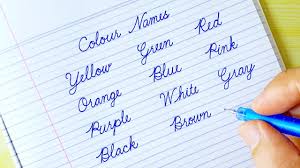 Colour Names
Yellow Green Red
Orange Blue Pink
Purple White Gray
Black Brown